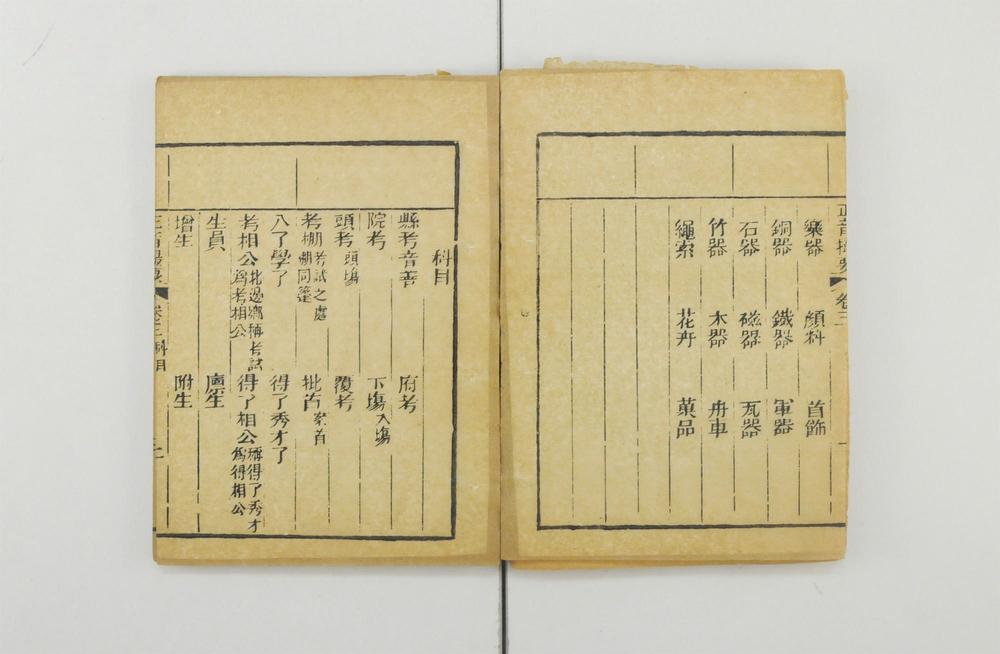 正音撮要 卷三
樂器 顏料 首飾
銅器 鐵器 軍器
石器 磁器 瓦器
竹器 木器 舟車
繩索 花卉 菓品
科目
縣考音善 府考
院考 下塲入塲
頭考頭塲 覆考
考棚考試之處棚同篷 批首案首
入了學了 得了秀才了
考相公北邊鄉稱考試爲考相公 得了相公稱得了秀才爲得相公
生員 廩生
增生 附生
正音撮要 卷三 科目